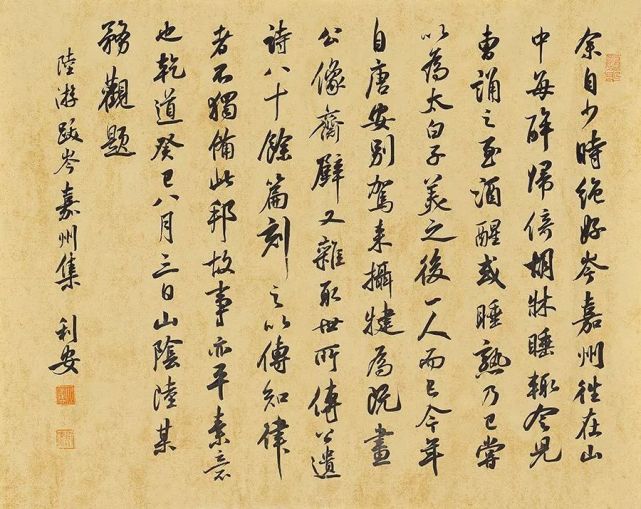 余自少時絶好岑嘉州往在山
中每醉歸倚胡牀睡輒令兒
曹誦之至酒醒或睡熟乃已嘗
以為太白子美之後一人而已今年
自唐安別駕来攝犍為既畫
公像齋壁又雜取世所傳公遺
詩八十餘篇刻之以傳知律
者不獨備此邦故事亦平素意
也乾道癸巳八月三日山陰陸某
務觀題
陸游跋岑嘉州集 利安